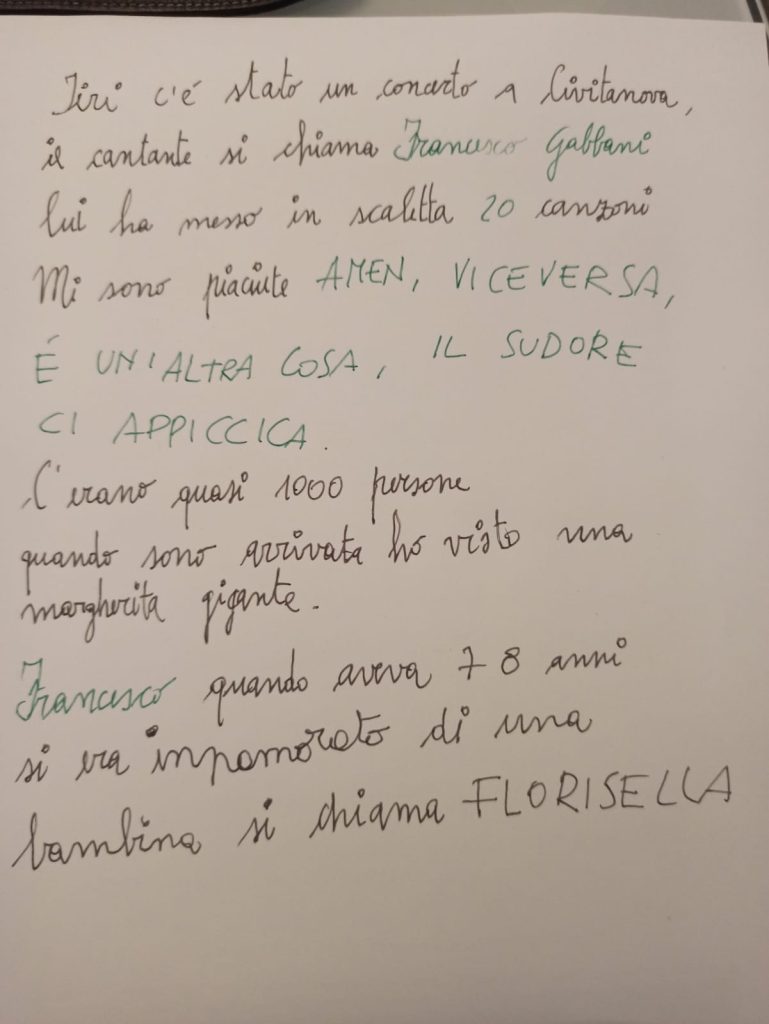 Ieri c'é stato un concerto a Civitanova,
il cantante si chiama Francesco Gabbani
lui ha messo in scaletta 20 canzoni
Mi sono piaciute AMEN, VICEVERSA,
É UN'ALTRA COSA, IL SUDORE
CI APPICCICA.
C'erano quasi 1000 persone
quando sono arrivata ho visto una
margherita gigante.
Francesco quando aveva 7 8 anni
si era innamorato di una
bambina si chiama FLORISELLA